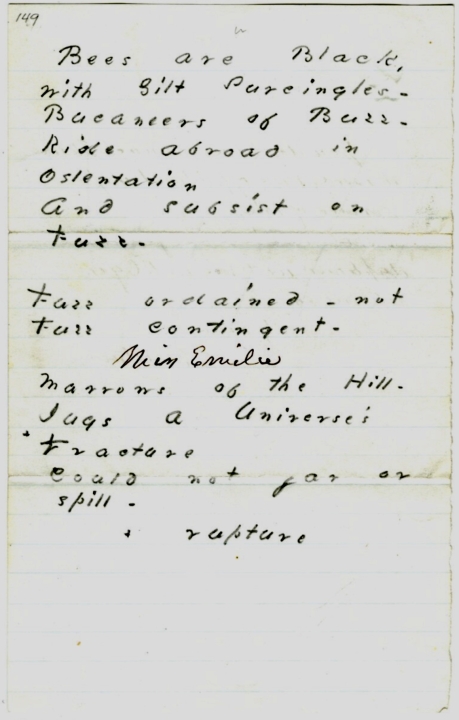 149
Bees are Black,
with Gilt Surcingles -
Bucaneers of Buzz -
Ride abroad in
Ostentation
And subsist on
Fuzz -
Fuzz ordained - not
Fuzz contingent -
Miss Emilie
Marrows of the Hill -
Jugs a Universe's
+ Fracture
Could not jar or
spill -
+ rupture